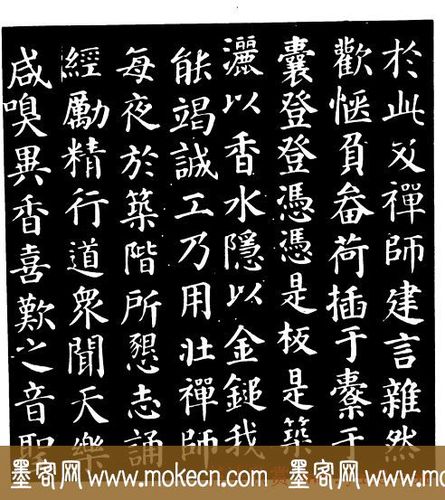 於此又禪師建言雜然
歡愜負畚荷插于橐于
囊登登憑憑是板是築
灑以香水隱以金鎚我
能竭誠工乃用壯禪師
每夜於築階所懇志誦
經勵精行道衆聞天樂
咸嗅異香喜歎之音聖
墨客网 www.mokecn.com 墨客网 www.mokecn.com